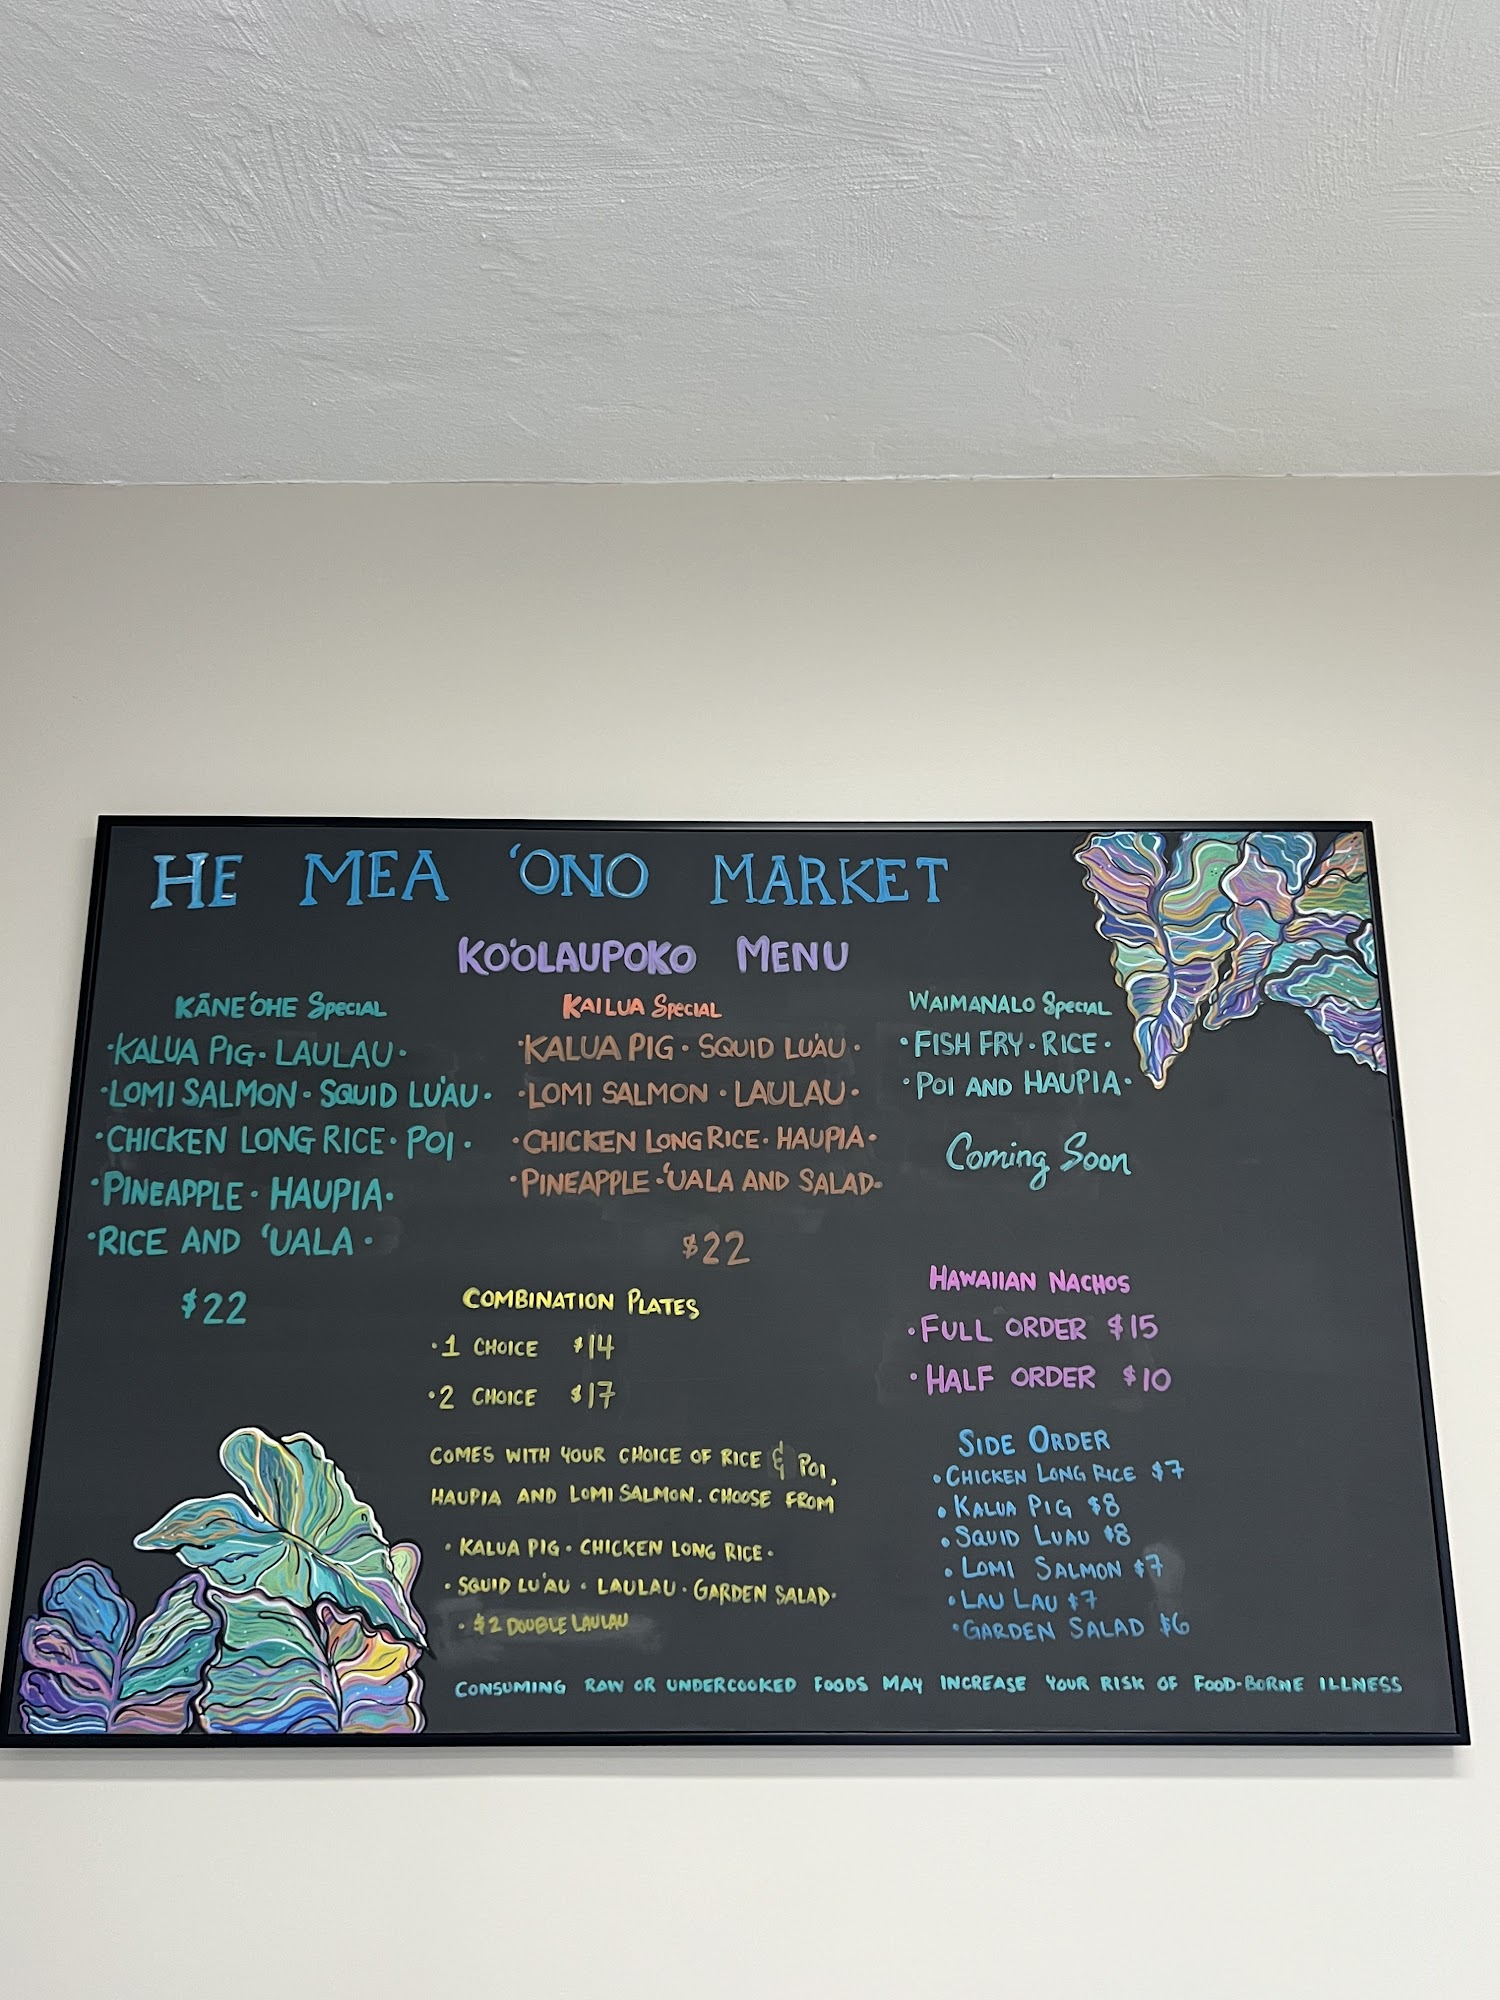 HE MEA ʻONO MARKET
KOʻOLAUPOKO MENU
KĀNEʻOHE SPECIAL
·KALUA PIG·LAULAU·
·LOMI SALMON·SQUID LUʻAU·
·CHICKEN LONG RICE·POI·
·PINEAPPLE·HAUPIA·
·RICE AND ʻUALA·
$22
KAILUA SPECIAL
·KALUA PIG·SQUID LUʻAU·
·LOMI SALMON·LAULAU·
·CHICKEN LONG RICE·HAUPIA·
·PINEAPPLE·ʻUALA AND SALAD·
$22
WAIMANALO SPECIAL
·FISH FRY·RICE·
·POI AND HAUPIA·
Coming Soon
COMBINATION PLATES
·1 CHOICE $14
·2 CHOICE $17
COMES WITH YOUR CHOICE OF RICE & POI,
HAUPIA AND LOMI SALMON. CHOOSE FROM
·KALUA PIG·CHICKEN LONG RICE·
·SQUID LUʻAU·LAULAU·GARDEN SALAD·
·$2 DOUBLE LAULAU
HAWAIIAN NACHOS
·FULL ORDER $15
·HALF ORDER $10
SIDE ORDER
·CHICKEN LONG RICE $7
·KALUA PIG $8
·SQUID LUAU $8
·LOMI SALMON $7
·LAU LAU $7
·GARDEN SALAD $6
CONSUMING RAW OR UNDERCOOKED FOODS MAY INCREASE YOUR RISK OF FOOD-BORNE ILLNESS